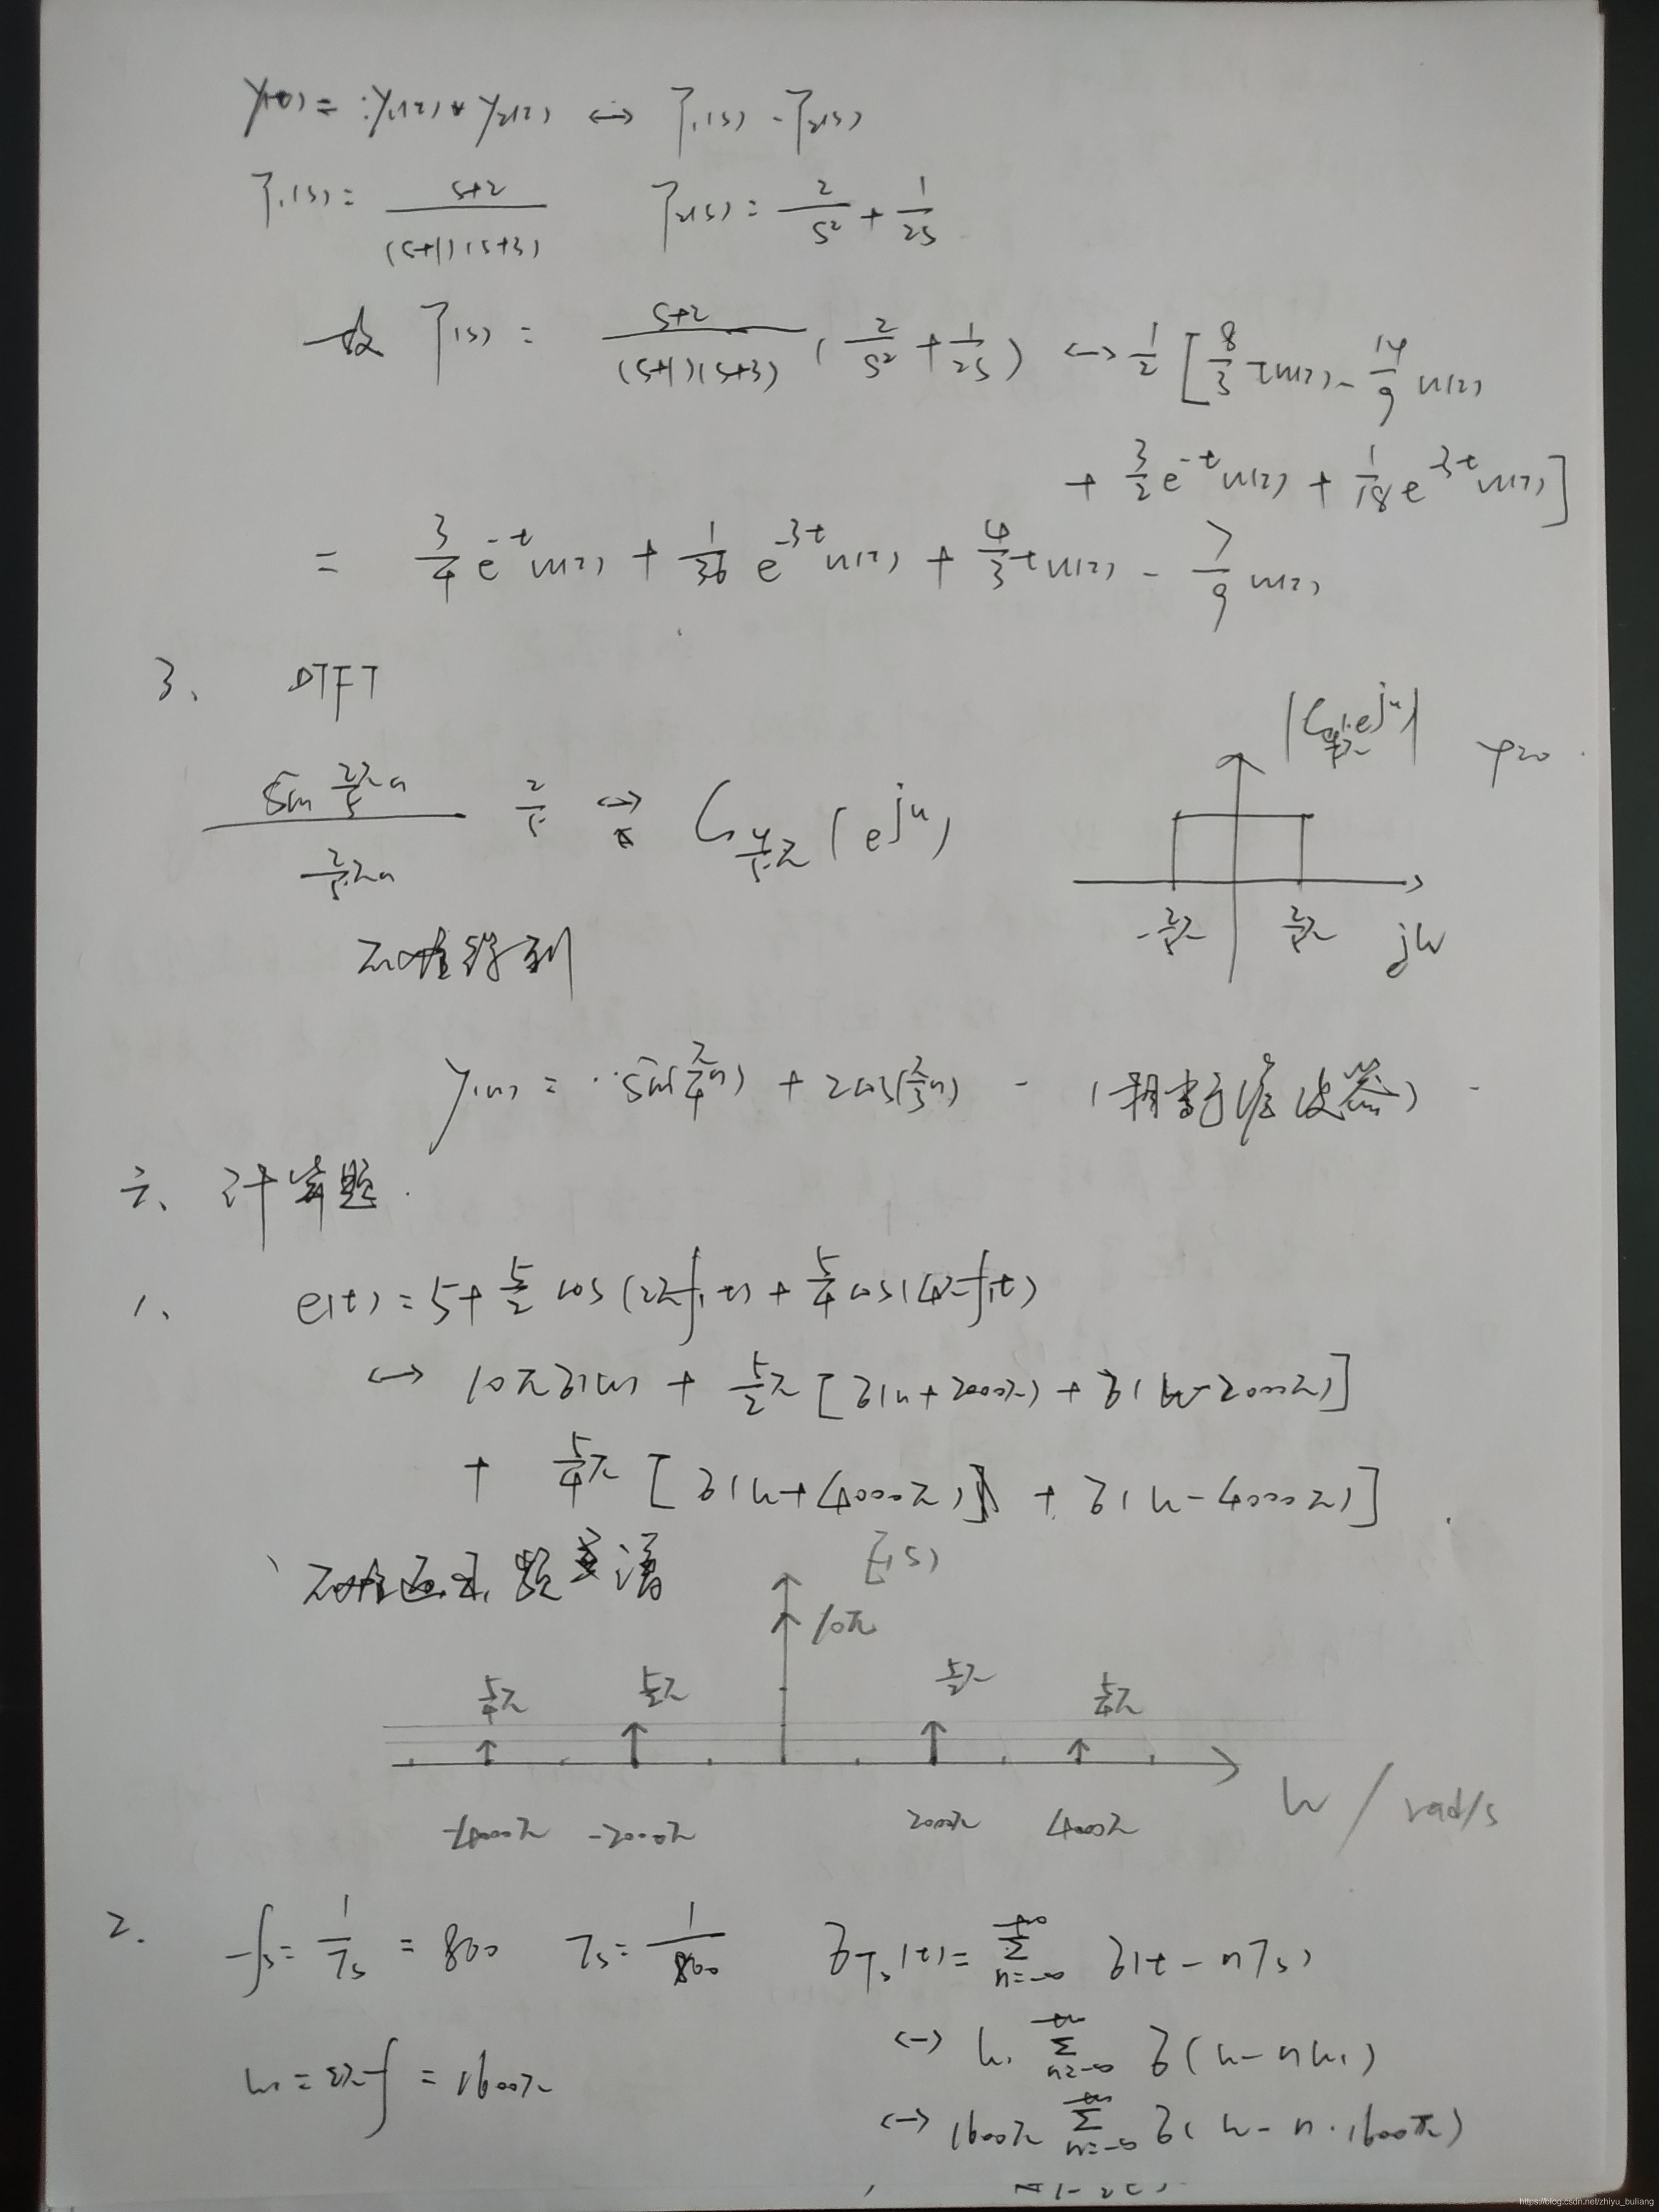 y(t) = y₁(t) * y₂(t) ↔ Y₁(s) · Y₂(s)
Y₁(s) = (s+2)/((s+1)(s+3)) Y₂(s) = 2/s² + 1/2s
故 Y(s) = (s+2)/((s+1)(s+3)) (2/s² + 1/2s) ↔ 1/2 [8/3 tu(t) - 14/9 u(t)
+ 3/2 e^{-t}u(t) + 1/18 e^{-3t}u(t)]
= 3/4 e^{-t}u(t) + 1/36 e^{-3t}u(t) + 4/3 tu(t) - 7/9 u(t)
3、 DTFT
|G_{4/5π}(e^{jω})| φ=0
sin(2/5 πn)/(2/5 πn) 2/5 ↔ G_{4/5π}(e^{jω})
-2/5π 2/5π jω
不难得到
y(n) = sin(π/4 n) + 2cos(π/3 n) (相当于滤波器)
六、计算题
1、 e(t) = 5 + 5/2 cos(2πf₁t) + 5/4 cos(4πf₁t)
↔ 10πδ(ω) + 5/2 π [δ(ω+2000π) + δ(ω-2000π)]
+ 5/4 π [δ(ω+4000π) + δ(ω-4000π)]
E(s)
10π
5/4π 5/2π 5/2π 5/4π
-4000π -2000π 2000π 4000π ω / rad/s
2. fs = 1/Ts = 800 Ts = 1/800 δ_{Ts}(t) = Σ_{n=-∞}^{+∞} δ(t - nTs)
↔ ω₁ Σ_{n=-∞}^{∞} δ(ω - nω₁)
ω₁ = 2πf = 1600π
↔ 1600π Σ_{n=-∞}^{∞} δ(ω - n·1600π)
https://blog.csdn.net/zhiyu_buliang